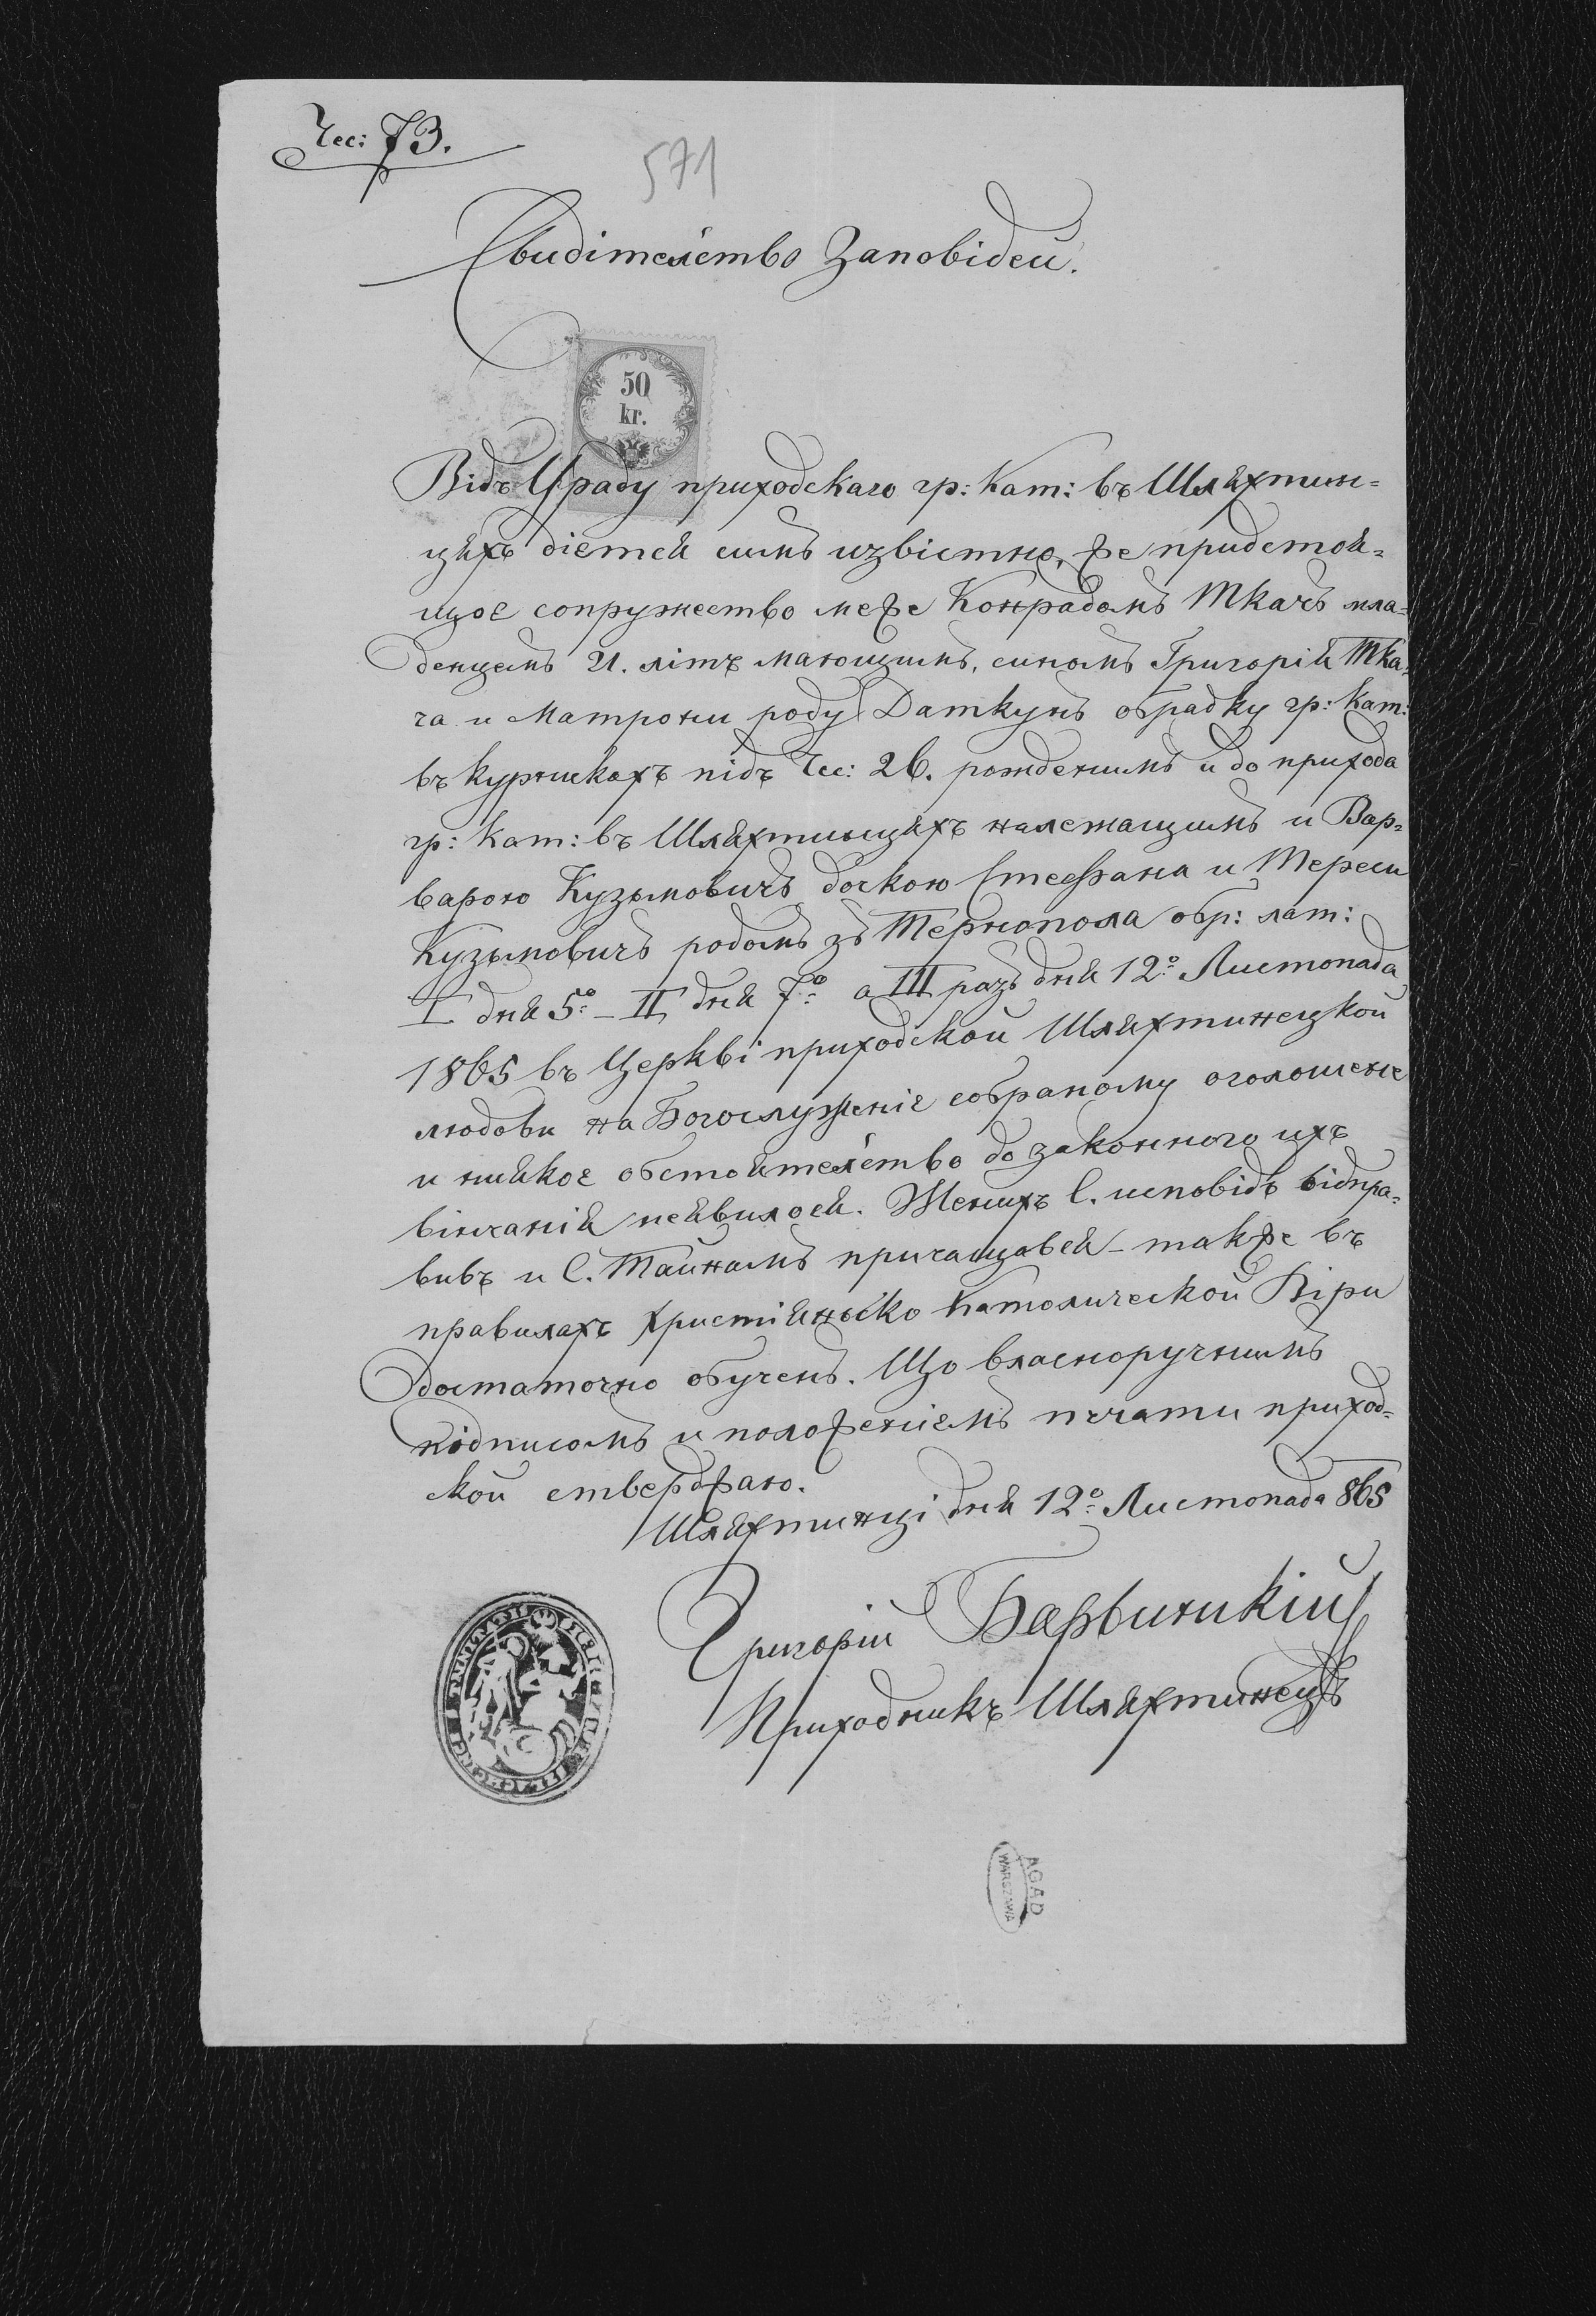 Чес: 73.
571
Свидітельство Заповідей.
50
kr.
Відъ Уряду приходскаго гр: Кат: въ Шляхтин=
цяхъ дієтся симъ извістно, же придстоя=
щоє сопружество меже Конрадомъ Ткачъ мла=
денцемъ 21. літъ маючимъ, синомъ Григорія Тка=
ча и Матрони роду Даткунъ обрядку гр: Кат:
въ Курникахъ підъ Чес: 26. рожденимъ и до прихода
гр: Кат: въ Шляхтинцяхъ належащимъ и Вар=
варою Кузьмовичъ дочкою Стефана и Тереси
Кузьмовичъ родомъ зъ Тернополя обр: лат:
I дня 5º – II дня 7º а III разъ дня 12º Листопада
1865 въ Церкві приходской Шляхтинецкой
людови на Богослуженіє собраному оголошене
и ниякоє обстоятельство до законного ихъ
вінчанія неявилося. Женихъ С. исповідь відпра=
вивъ и С. Тайнамъ причащався – также въ
правилахъ християнсько Католической Віри
достаточно обученъ. Що власноручнимъ
підписомъ и положенієм печати приход=
ской стверджаю.
Шляхтинці дня 12º Листопада 865
Григорій Барвинскій
Приходникъ Шляхтинецъ
AGAD
WARSZAWA